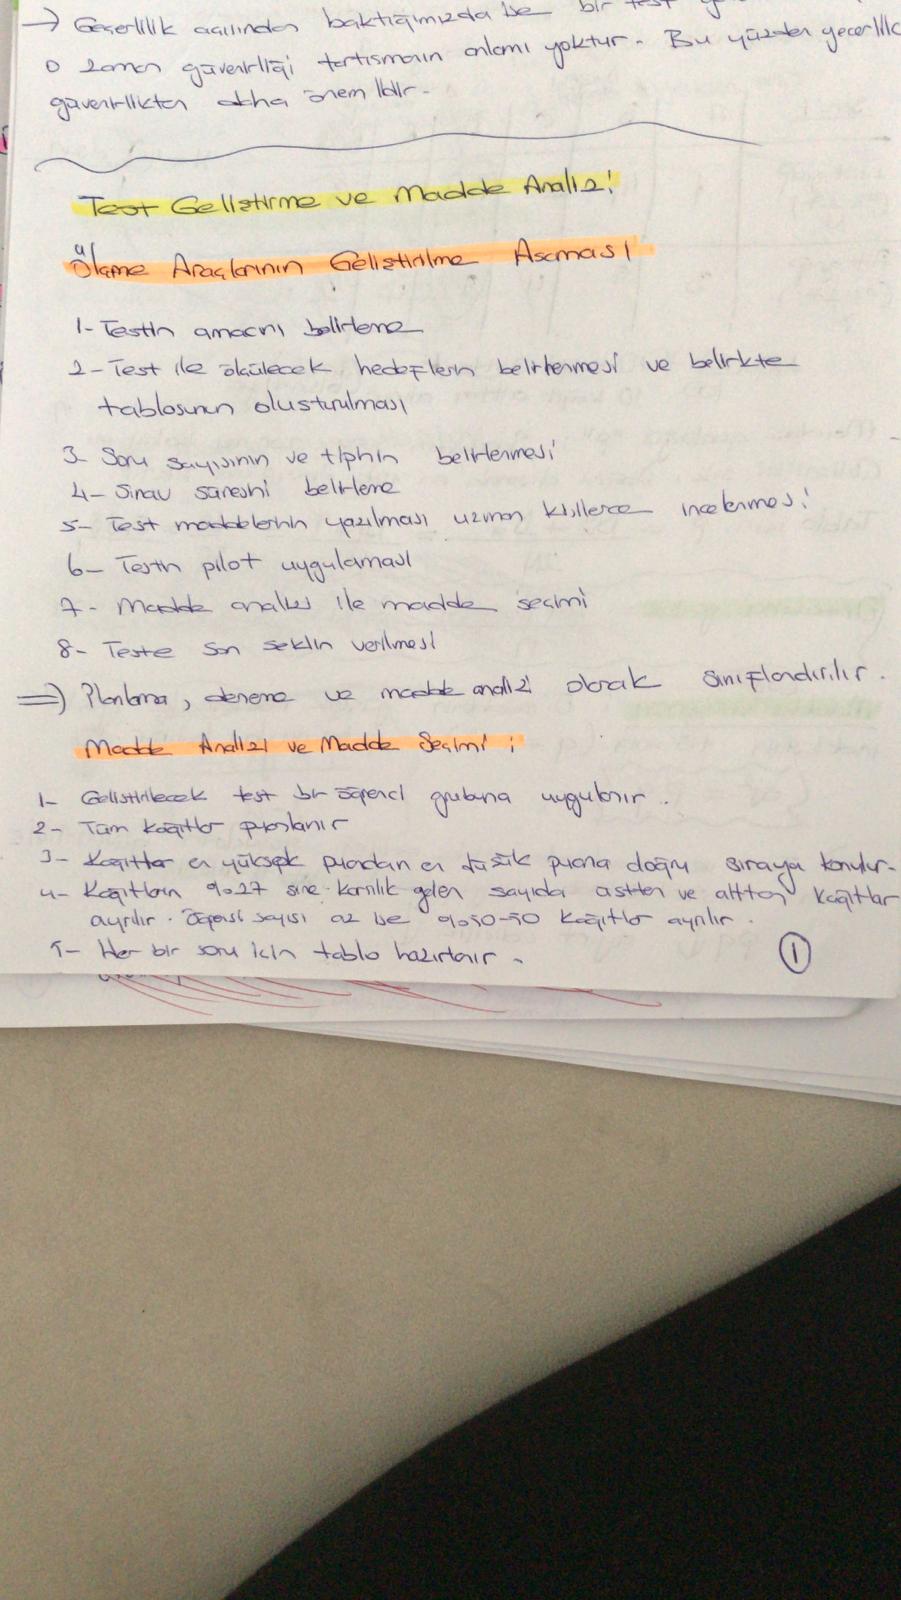 → Geçerlilik açısından baktığımızda ise bir test
o zaman güvenirliği tartışmanın anlamı yoktur. Bu yüzden geçerlilik
güvenirlikten daha önemlidir.
Test Geliştirme ve Madde Analizi
Ölçme Araçlarının Geliştirilme Aşaması
1- Testin amacını belirleme
2- Test ile ölçülecek hedeflerin belirlenmesi ve belirtke
tablosunun oluşturulması
3- Soru sayısının ve tipinin belirlenmesi
4- Sınav süresini belirleme
5- Test maddelerinin yazılması uzman kişilerce incelenmesi
6- Testin pilot uygulaması
7- Madde analizi ile madde seçimi
8- Teste son şeklin verilmesi
⇒ Planlama, deneme ve madde analizi olarak sınıflandırılır.
Madde Analizi ve Madde Seçimi ;
1- Geliştirilecek test bir öğrenci grubuna uygulanır.
2- Tüm kağıtlar puanlanır
3- Kağıtlar en yüksek puandan en düşük puana doğru sıraya konulur.
4- Kağıtların %27 sine karşılık gelen sayıda üstten ve alttan kağıtlar
ayrılır. Öğrenci sayısı az ise %50-50 kağıtlar ayrılır.
5- Her bir soru için tablo hazırlanır.
1